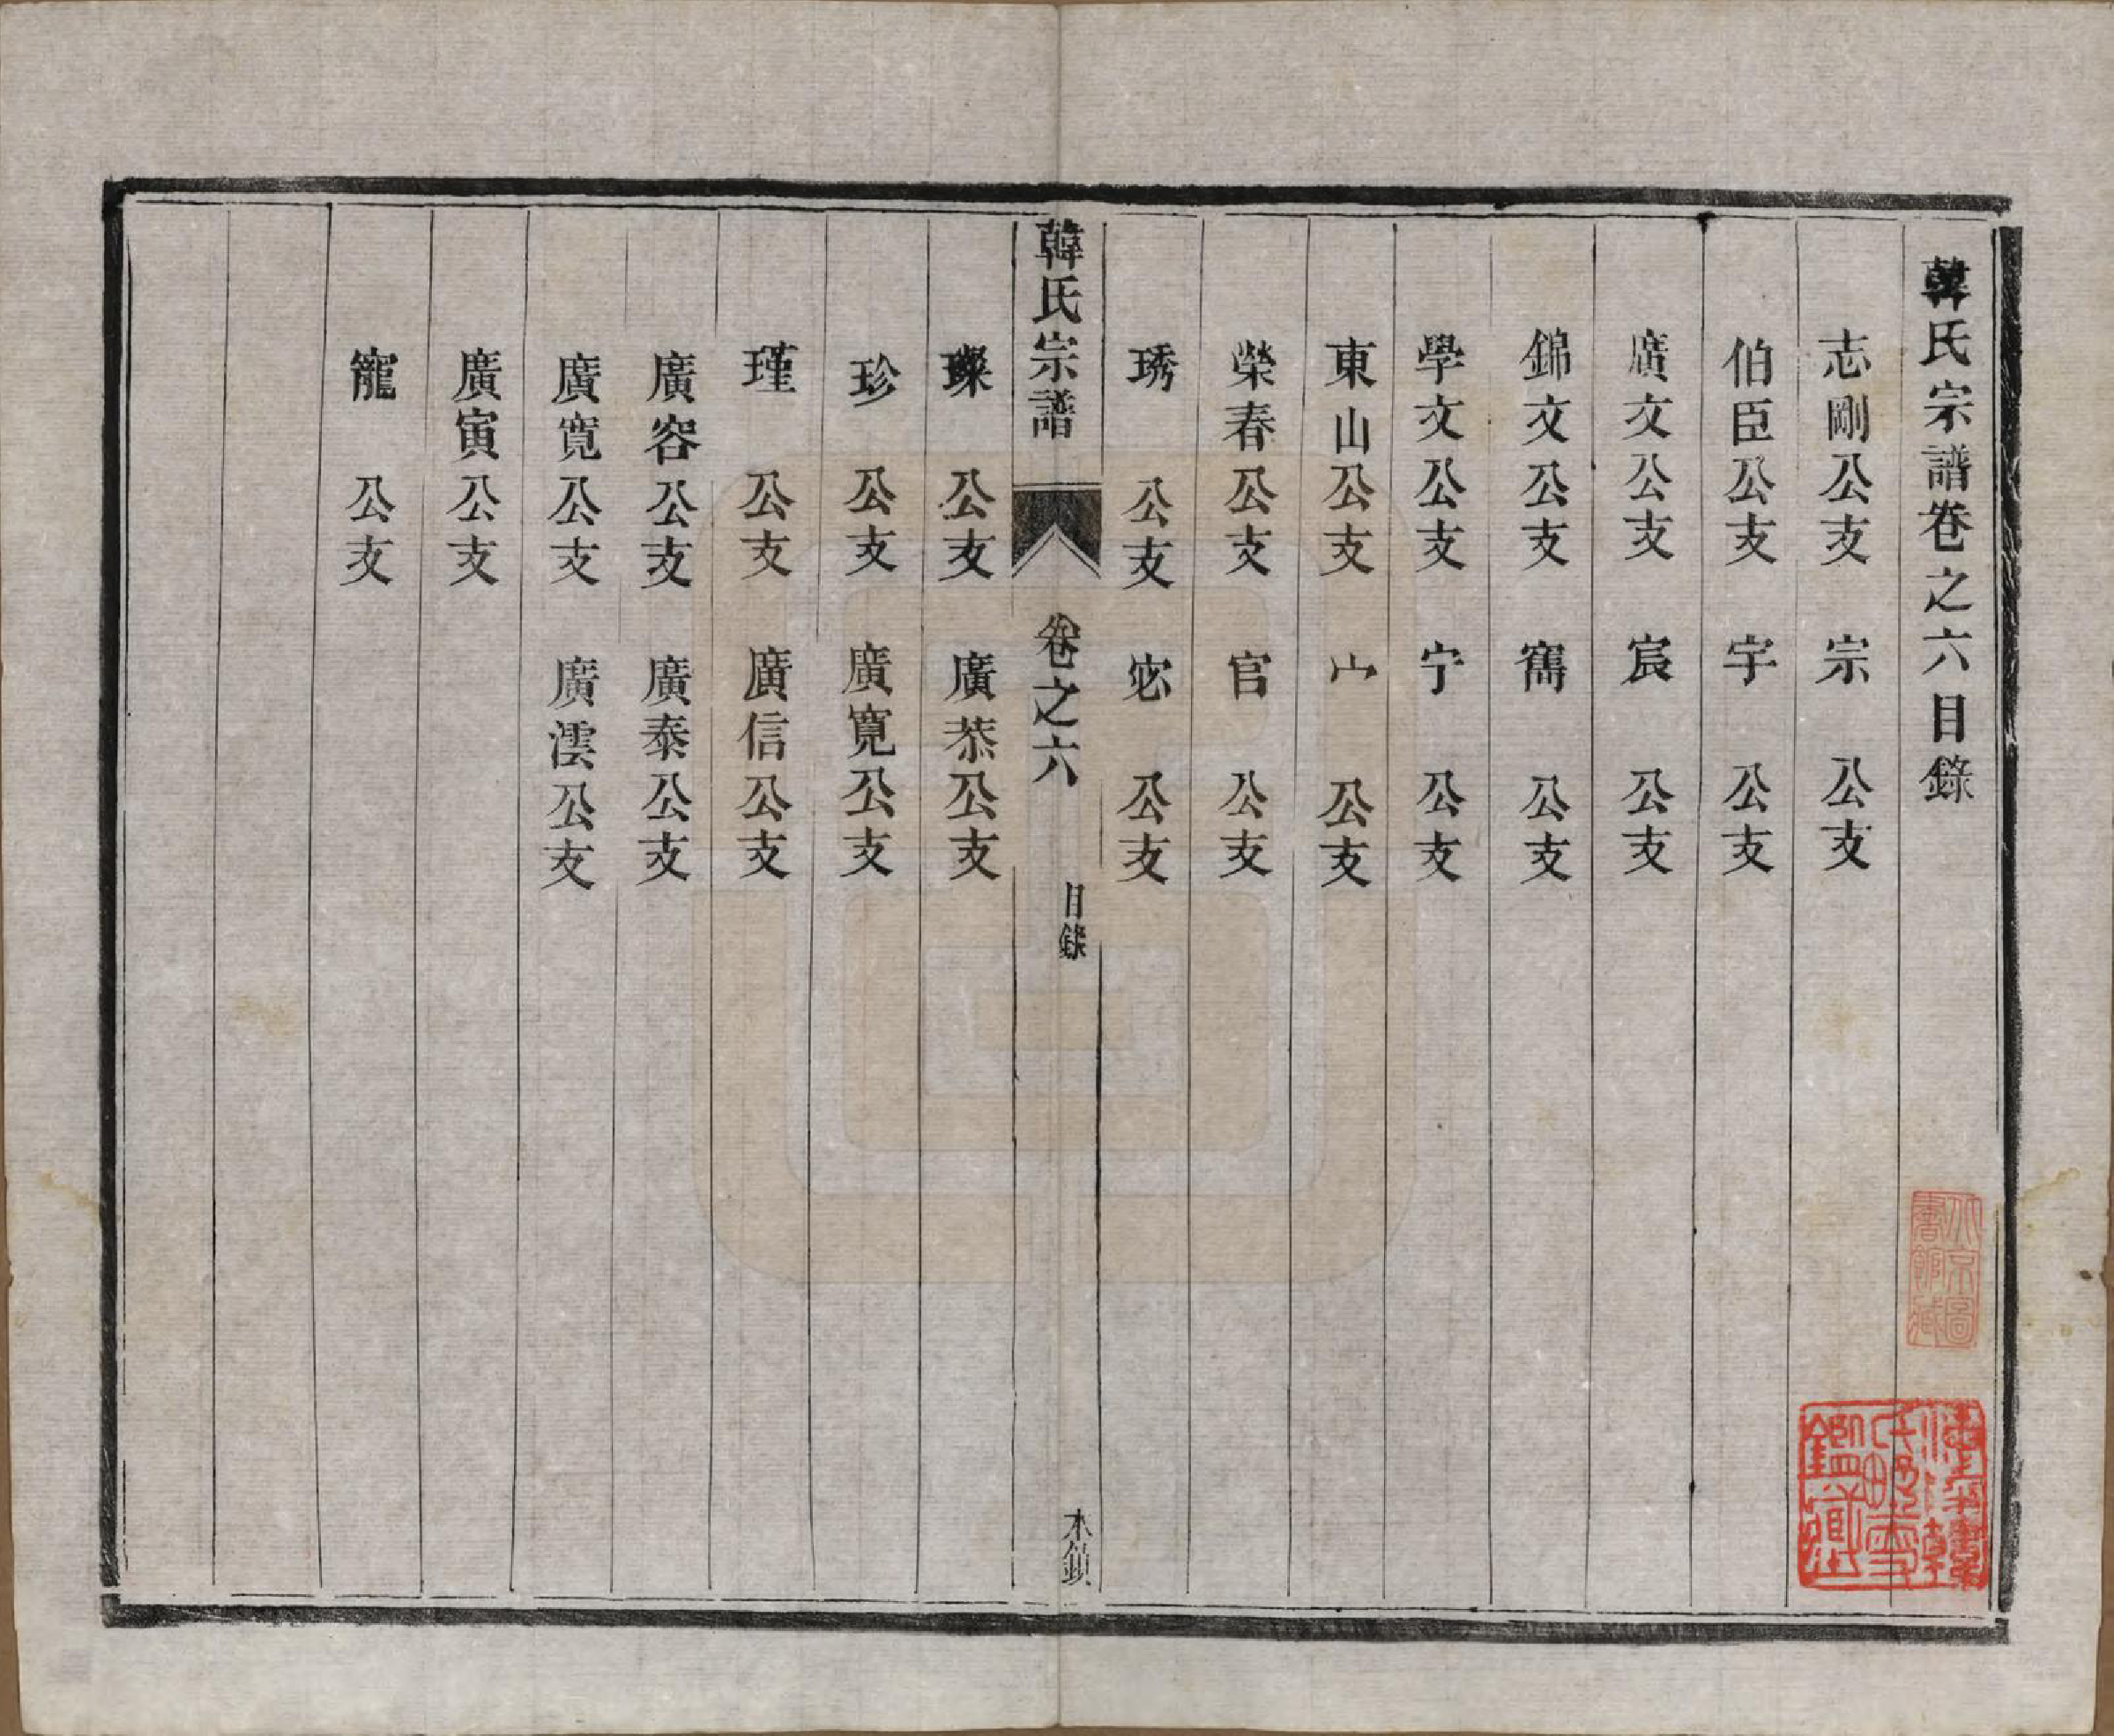 韓氏宗譜卷之六目錄
志剛公支 宗 公支
伯臣公支 宇 公支
廣文公支 宸 公支
錦文公支 寯 公支
學文公支 宁 公支
東山公支 宀 公支
榮春公支 官 公支
琇 公支 宓 公支
韓氏宗譜 卷之六 目錄 木鎮
璨 公支 廣恭公支
珍 公支 廣寬公支
瑾 公支 廣信公支
廣容公支 廣泰公支
廣寬公支 廣澐公支
廣寅公支
寵 公支
北京圖書館藏